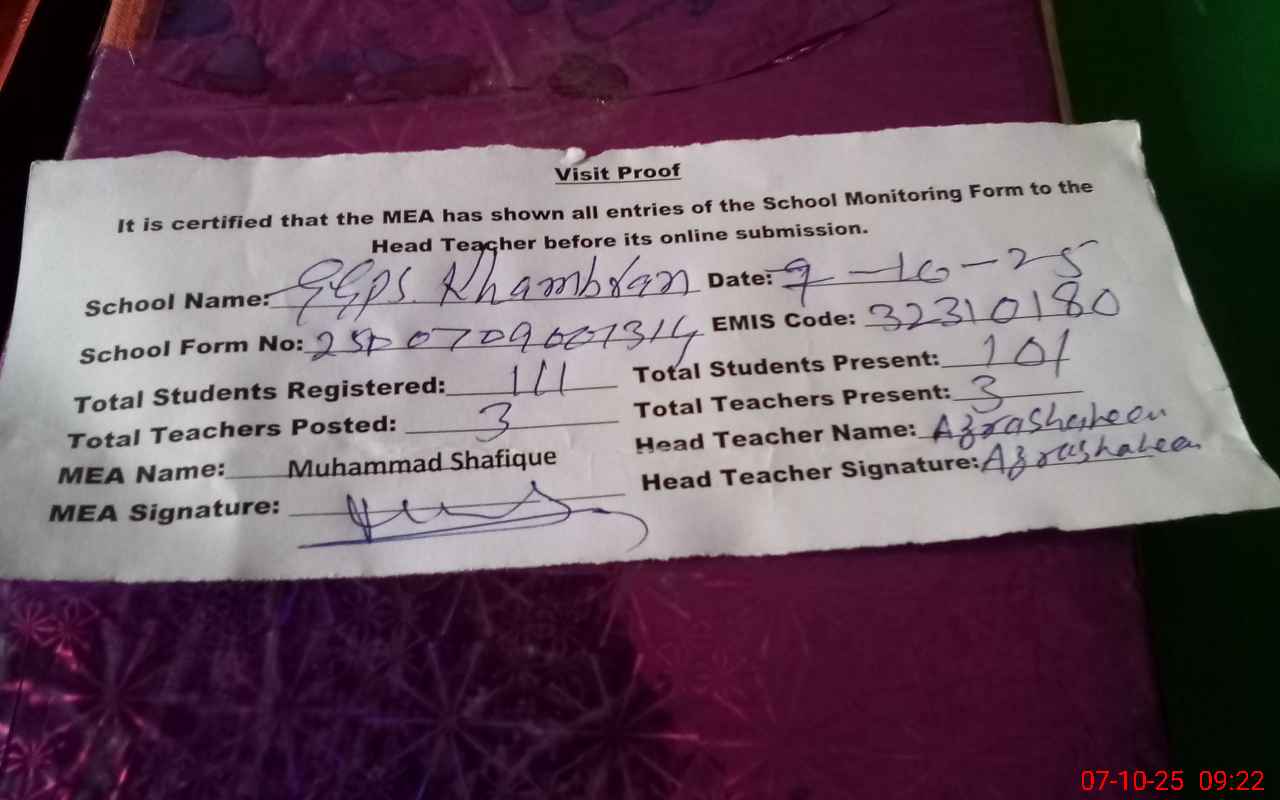 Visit Proof
It is certified that the MEA has shown all entries of the School Monitoring Form to the
Head Teacher before its online submission.
School Name: GGPS Khambran Date: 7-10-25
School Form No: EMIS Code: 32310180
Total Students Registered: 111 Total Students Present: 101
Total Teachers Posted: 3 Total Teachers Present: 3
MEA Name: Muhammad Shafique Head Teacher Name: Azra Shaheen
MEA Signature: Head Teacher Signature: Azra Shaheen
07-10-25 09:22